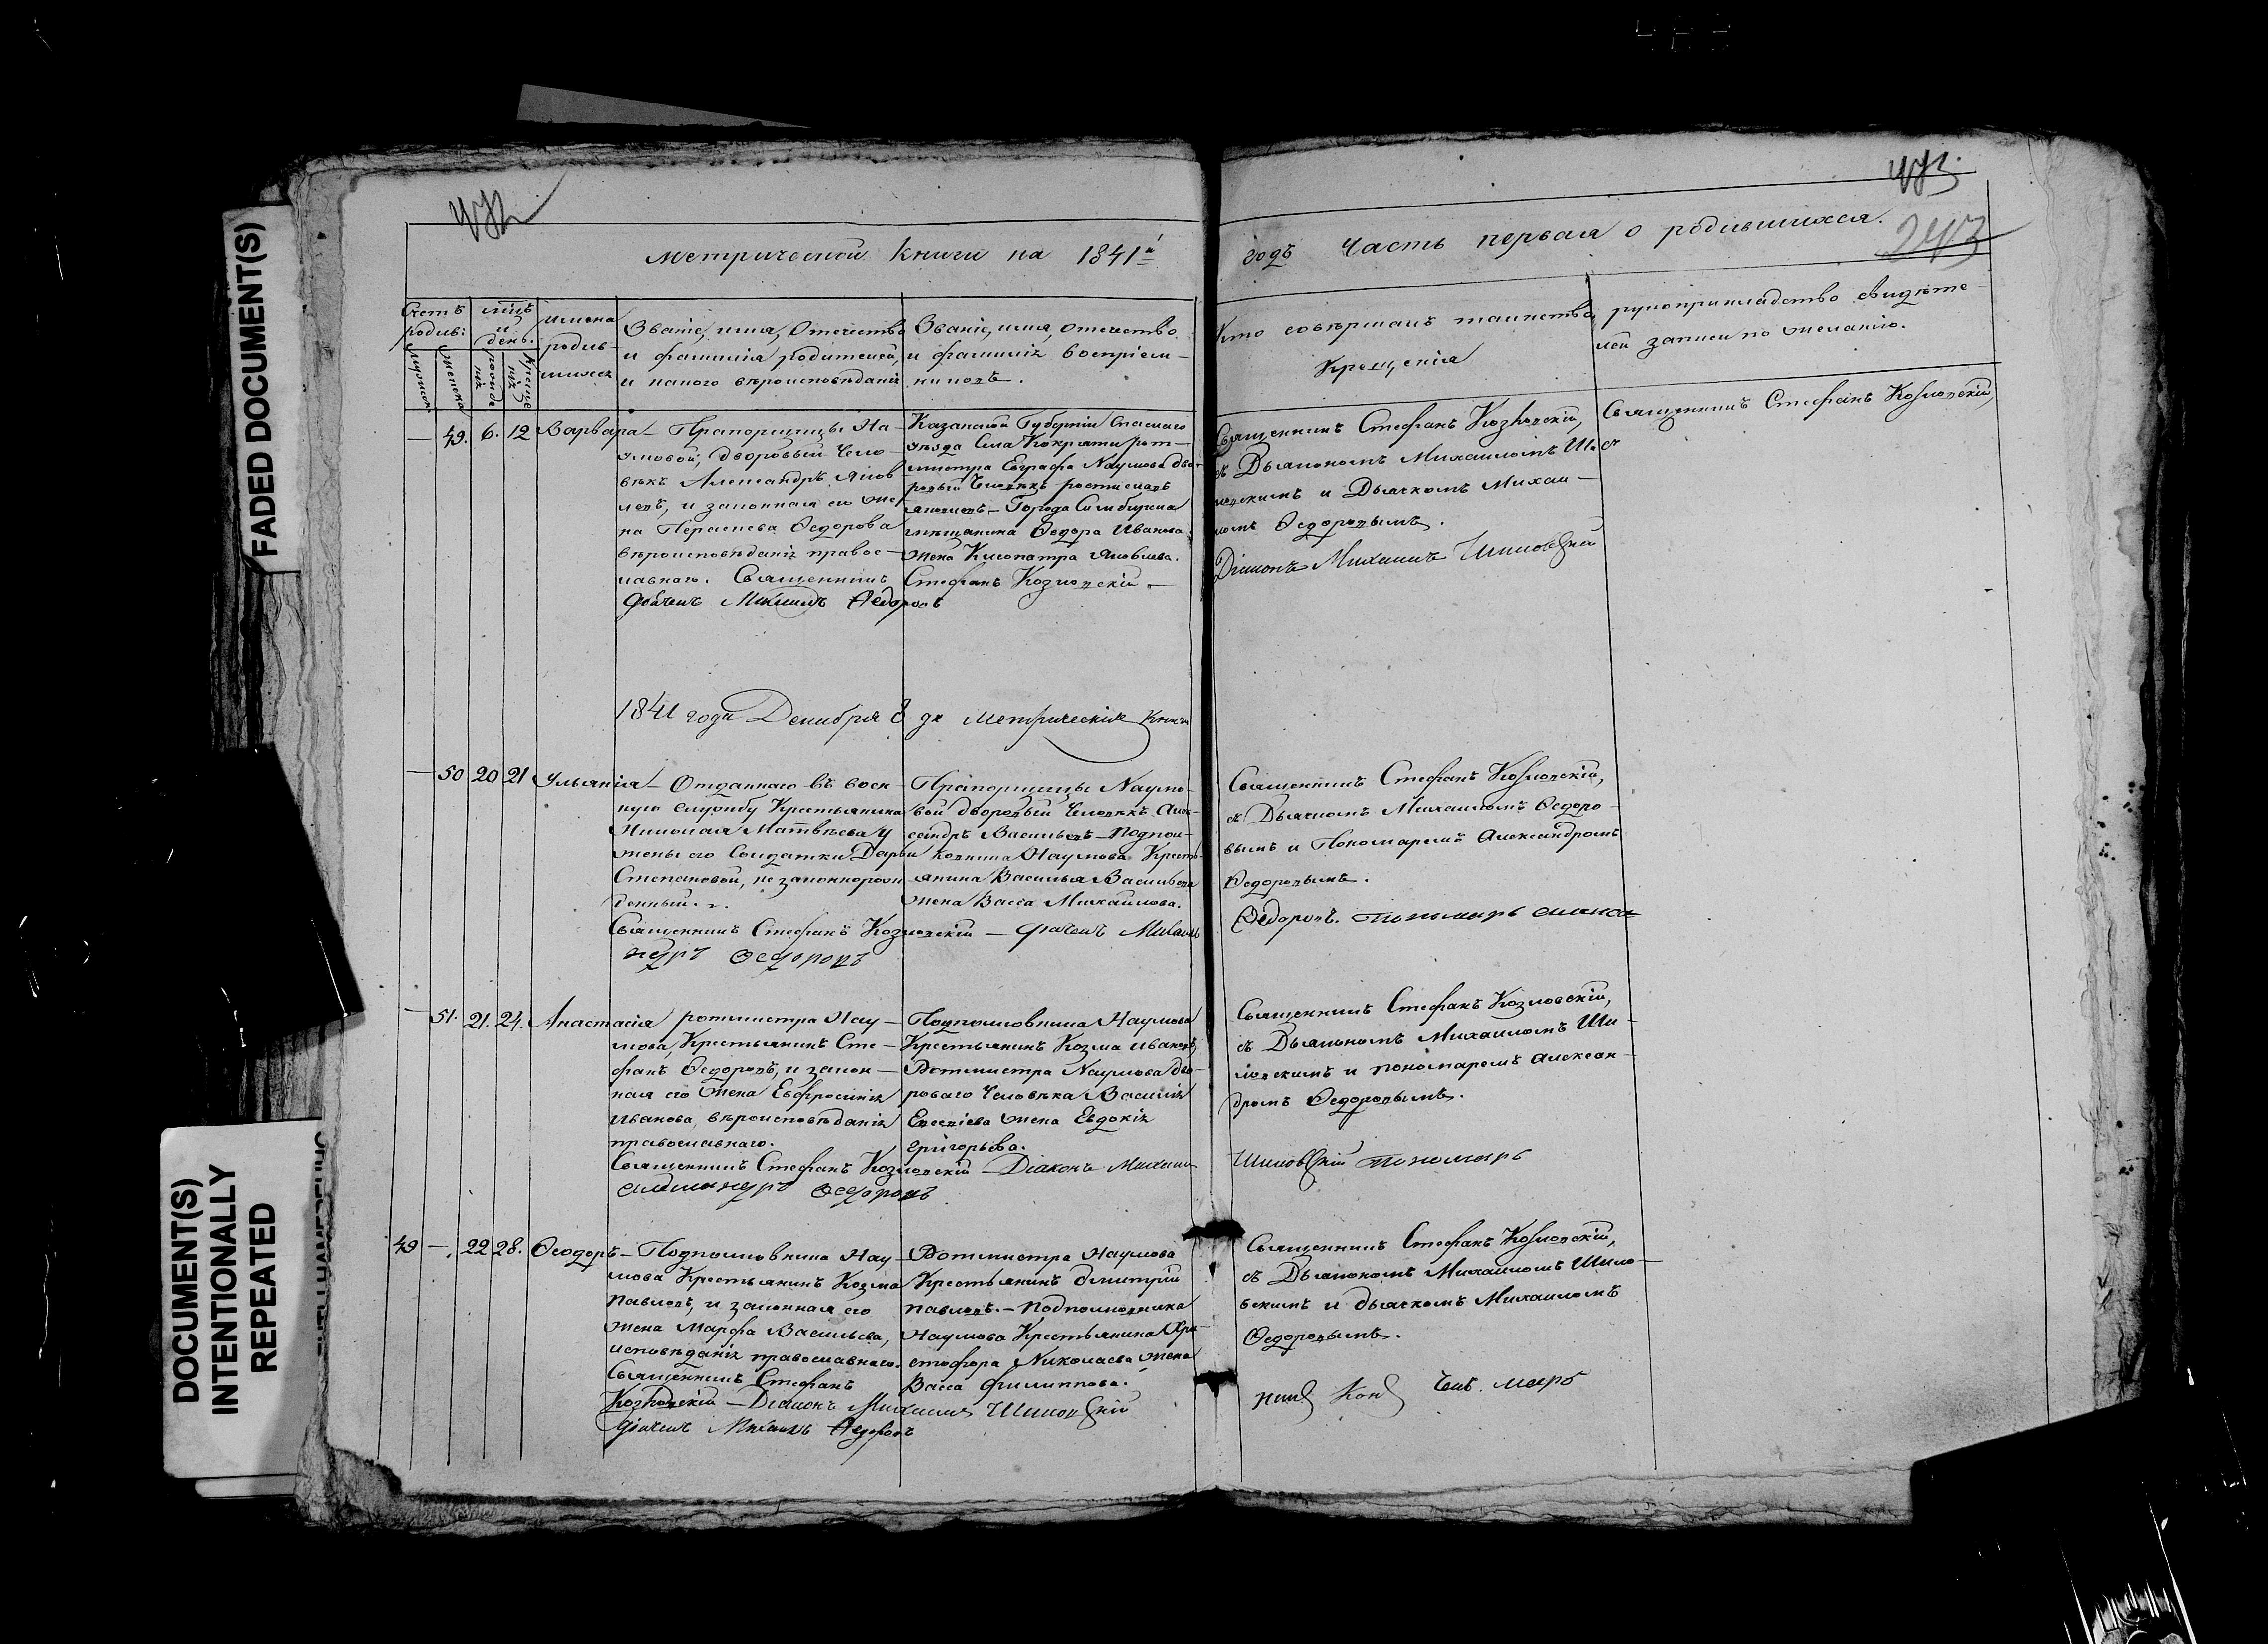 FADED DOCUMENT(S)
DOCUMENT(S)
INTENTIONALLY
REPEATED
472
473
243
Метрической книги на 1841й
годъ Часть первая о родившихся.
Счетъ родив:
мужеск.
женска
мцъ и день.
рожденія
крещенія
имена родив-
шихся
Званіе, имя, Отечество
и фамилія родителей,
и какого вѣроисповѣданія
Званіе, имя, отечество
и фамилія воспріем-
никовъ.
Кто совершалъ таинство
Крещенія
рукоприкладство свидѣте-
лей записи по желанію.
— 49. 6. 12 Варвара — Прапорщицы На-
умовой, дворовый Чело-
вѣкъ Александръ Яков-
левъ, и законная его же-
на Параскева Ѳедорова
вѣроисповѣданія правос-
лавнаго. Священникъ Стефанъ Козловскій —
Дьячекъ Михаилъ Ѳедоровъ
Казанской Губерніи Спаскаго
уѣзда Села Кокряти рот-
мистра Евграфа Наумова дво-
ровый Человѣкъ
Города Симбирска
мѣщанина Ѳедора Иванова
жена Клеопатра Яковлева.
Священникъ Стефанъ Козловскій,
съ Дьякономъ Михаиломъ Ши-
ловскимъ и Дьячкомъ Михаи-
ломъ Ѳедоровымъ.
Діаконъ Михаилъ Шиловскій
Священникъ Стефанъ Козловскій,
1841 года Декабря 8 дн Метрическія Книги
— 50 20 21 Ульянія — Отданнаго въ воен-
ную службу Крестьянина
Николая Матвѣева у
жены его Солдатки Дарьи
Степановой, не законнорож-
денный.
Священникъ Стефанъ Козловскій — Дьячекъ Михаилъ
ндръ Ѳедоровъ
Прапорщицы Наумо-
вой дворовый Человѣкъ Алек-
сандръ Васильевъ — Подпол-
ковника Наумова Кресть-
янина Василья Васильева
жена Васса Михайлова.
Священникъ Стефанъ Козловскій,
съ Дьячкомъ Михаиломъ Ѳедоро-
вымъ и Пономаремъ Александромъ
Ѳедоровымъ.
Ѳедоровъ. Пономарь Алекса
— 51. 21. 24. Анастасія ротмистра Нау-
мова, Крестьянинъ Сте-
фанъ Ѳедоровъ, и закон-
ная его жена Евфросинія
Иванова, вѣроисповѣданія
православнаго.
Священникъ Стефанъ Козловскій — Діаконъ Михаилъ
Александръ Ѳедоровъ
Подполковника Наумова
Крестьянинъ Козма Ивановъ,
Ротмистра Наумова дво-
роваго Человѣка Василія
Евсевіева жена Евдокія
Григорьева.
Священникъ Стефанъ Козловскій,
съ Дьякономъ Михаиломъ Ши-
ловскимъ и пономаремъ Алексан-
дромъ Ѳедоровымъ.
Шиловскій Пономарь
49 — 22 28. Ѳеодоръ — Подполковника Нау-
мова Крестьянинъ Козма
Павловъ, и законная его
жена Марфа Васильева,
исповѣданія православнаго.
Священникъ Стефанъ
Козловскій — Діаконъ Михаилъ Шиловскій
Дьячекъ Михаилъ Ѳедоровъ
Ротмистра Наумова
Крестьянинъ Дмитрій
Павловъ. — Подполковника
Наумова Крестьянина Хри-
стофора Николаева жена
Васса Филиппова.
Священникъ Стефанъ Козловскій,
съ Дьякономъ Михаиломъ Шило-
вскимъ и дьячкомъ Михаиломъ
Ѳедоровымъ.